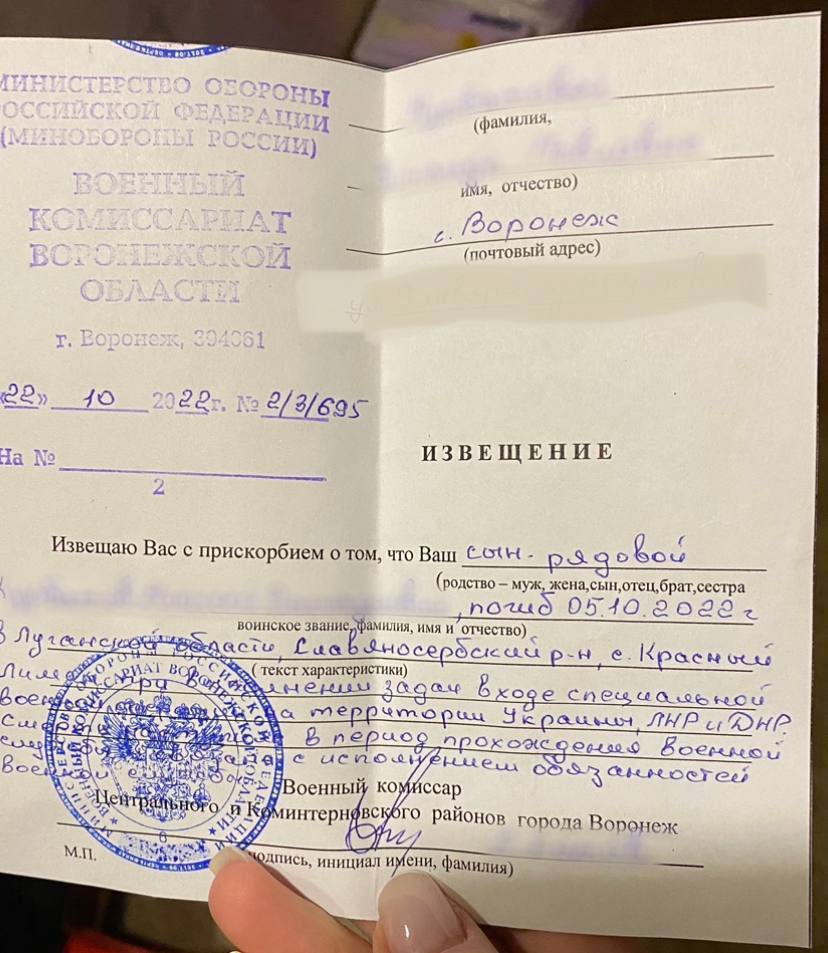 МИНИСТЕРСТВО ОБОРОНЫ
РОССИЙСКОЙ ФЕДЕРАЦИИ
(МИНОБОРОНЫ РОССИИ)
ВОЕННЫЙ
КОМИССАРИАТ
ВОРОНЕЖСКОЙ
ОБЛАСТИ
г. Воронеж, 394061
«22» 10 2022г. № 2/3/695
На №
2
(фамилия,
имя, отчество)
г. Воронеж
(почтовый адрес)
ИЗВЕЩЕНИЕ
Извещаю Вас с прискорбием о том, что Ваш сын - рядовой
(родство – муж, жена,сын,отец,брат,сестра
, погиб 05.10.2022 г
воинское звание, фамилия, имя и отчество)
в Луганской области, Славяносербский р-н, с. Красный
( текст характеристики)
задач входе специальной
на территории Украины, ЛНР и ДНР.
в период прохождения военной
с исполнением обязанностей
военной службы
Военный комиссар
Центрального и Коминтерновского районов города Воронеж
М.П.
подпись, инициал имени, фамилия)